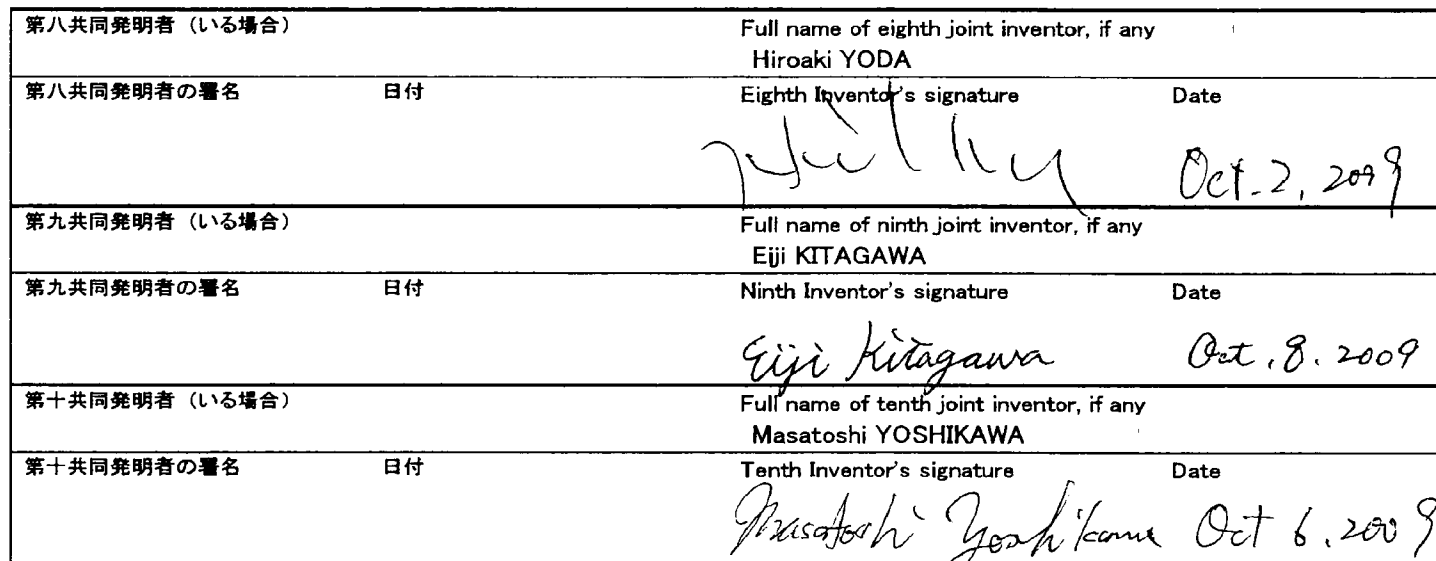 第八共同発明者（いる場合） Full name of eighth joint inventor, if any
Hiroaki YODA
第八共同発明者の署名 日付 Eighth Inventor's signature Date
Oct. 2, 2009
第九共同発明者（いる場合） Full name of ninth joint inventor, if any
Eiji KITAGAWA
第九共同発明者の署名 日付 Ninth Inventor's signature Date
Eiji Kitagawa Oct. 8. 2009
第十共同発明者（いる場合） Full name of tenth joint inventor, if any
Masatoshi YOSHIKAWA
第十共同発明者の署名 日付 Tenth Inventor's signature Date
Masatoshi Yoshikawa Oct 6. 2009